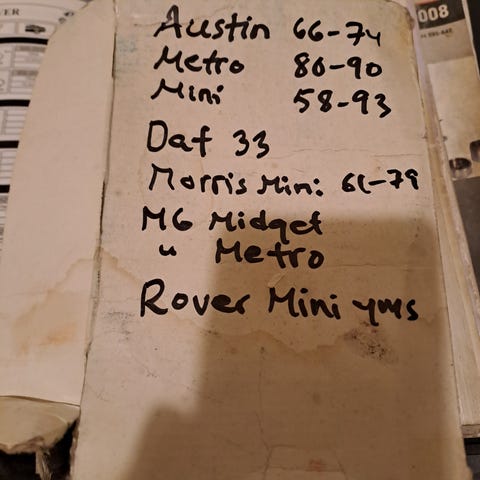 Austin 66-74
Metro 80-90
Mini 58-93
Daf 33
Morris Mini 61-79
MG Midget
" Metro
Rover Mini yms
008